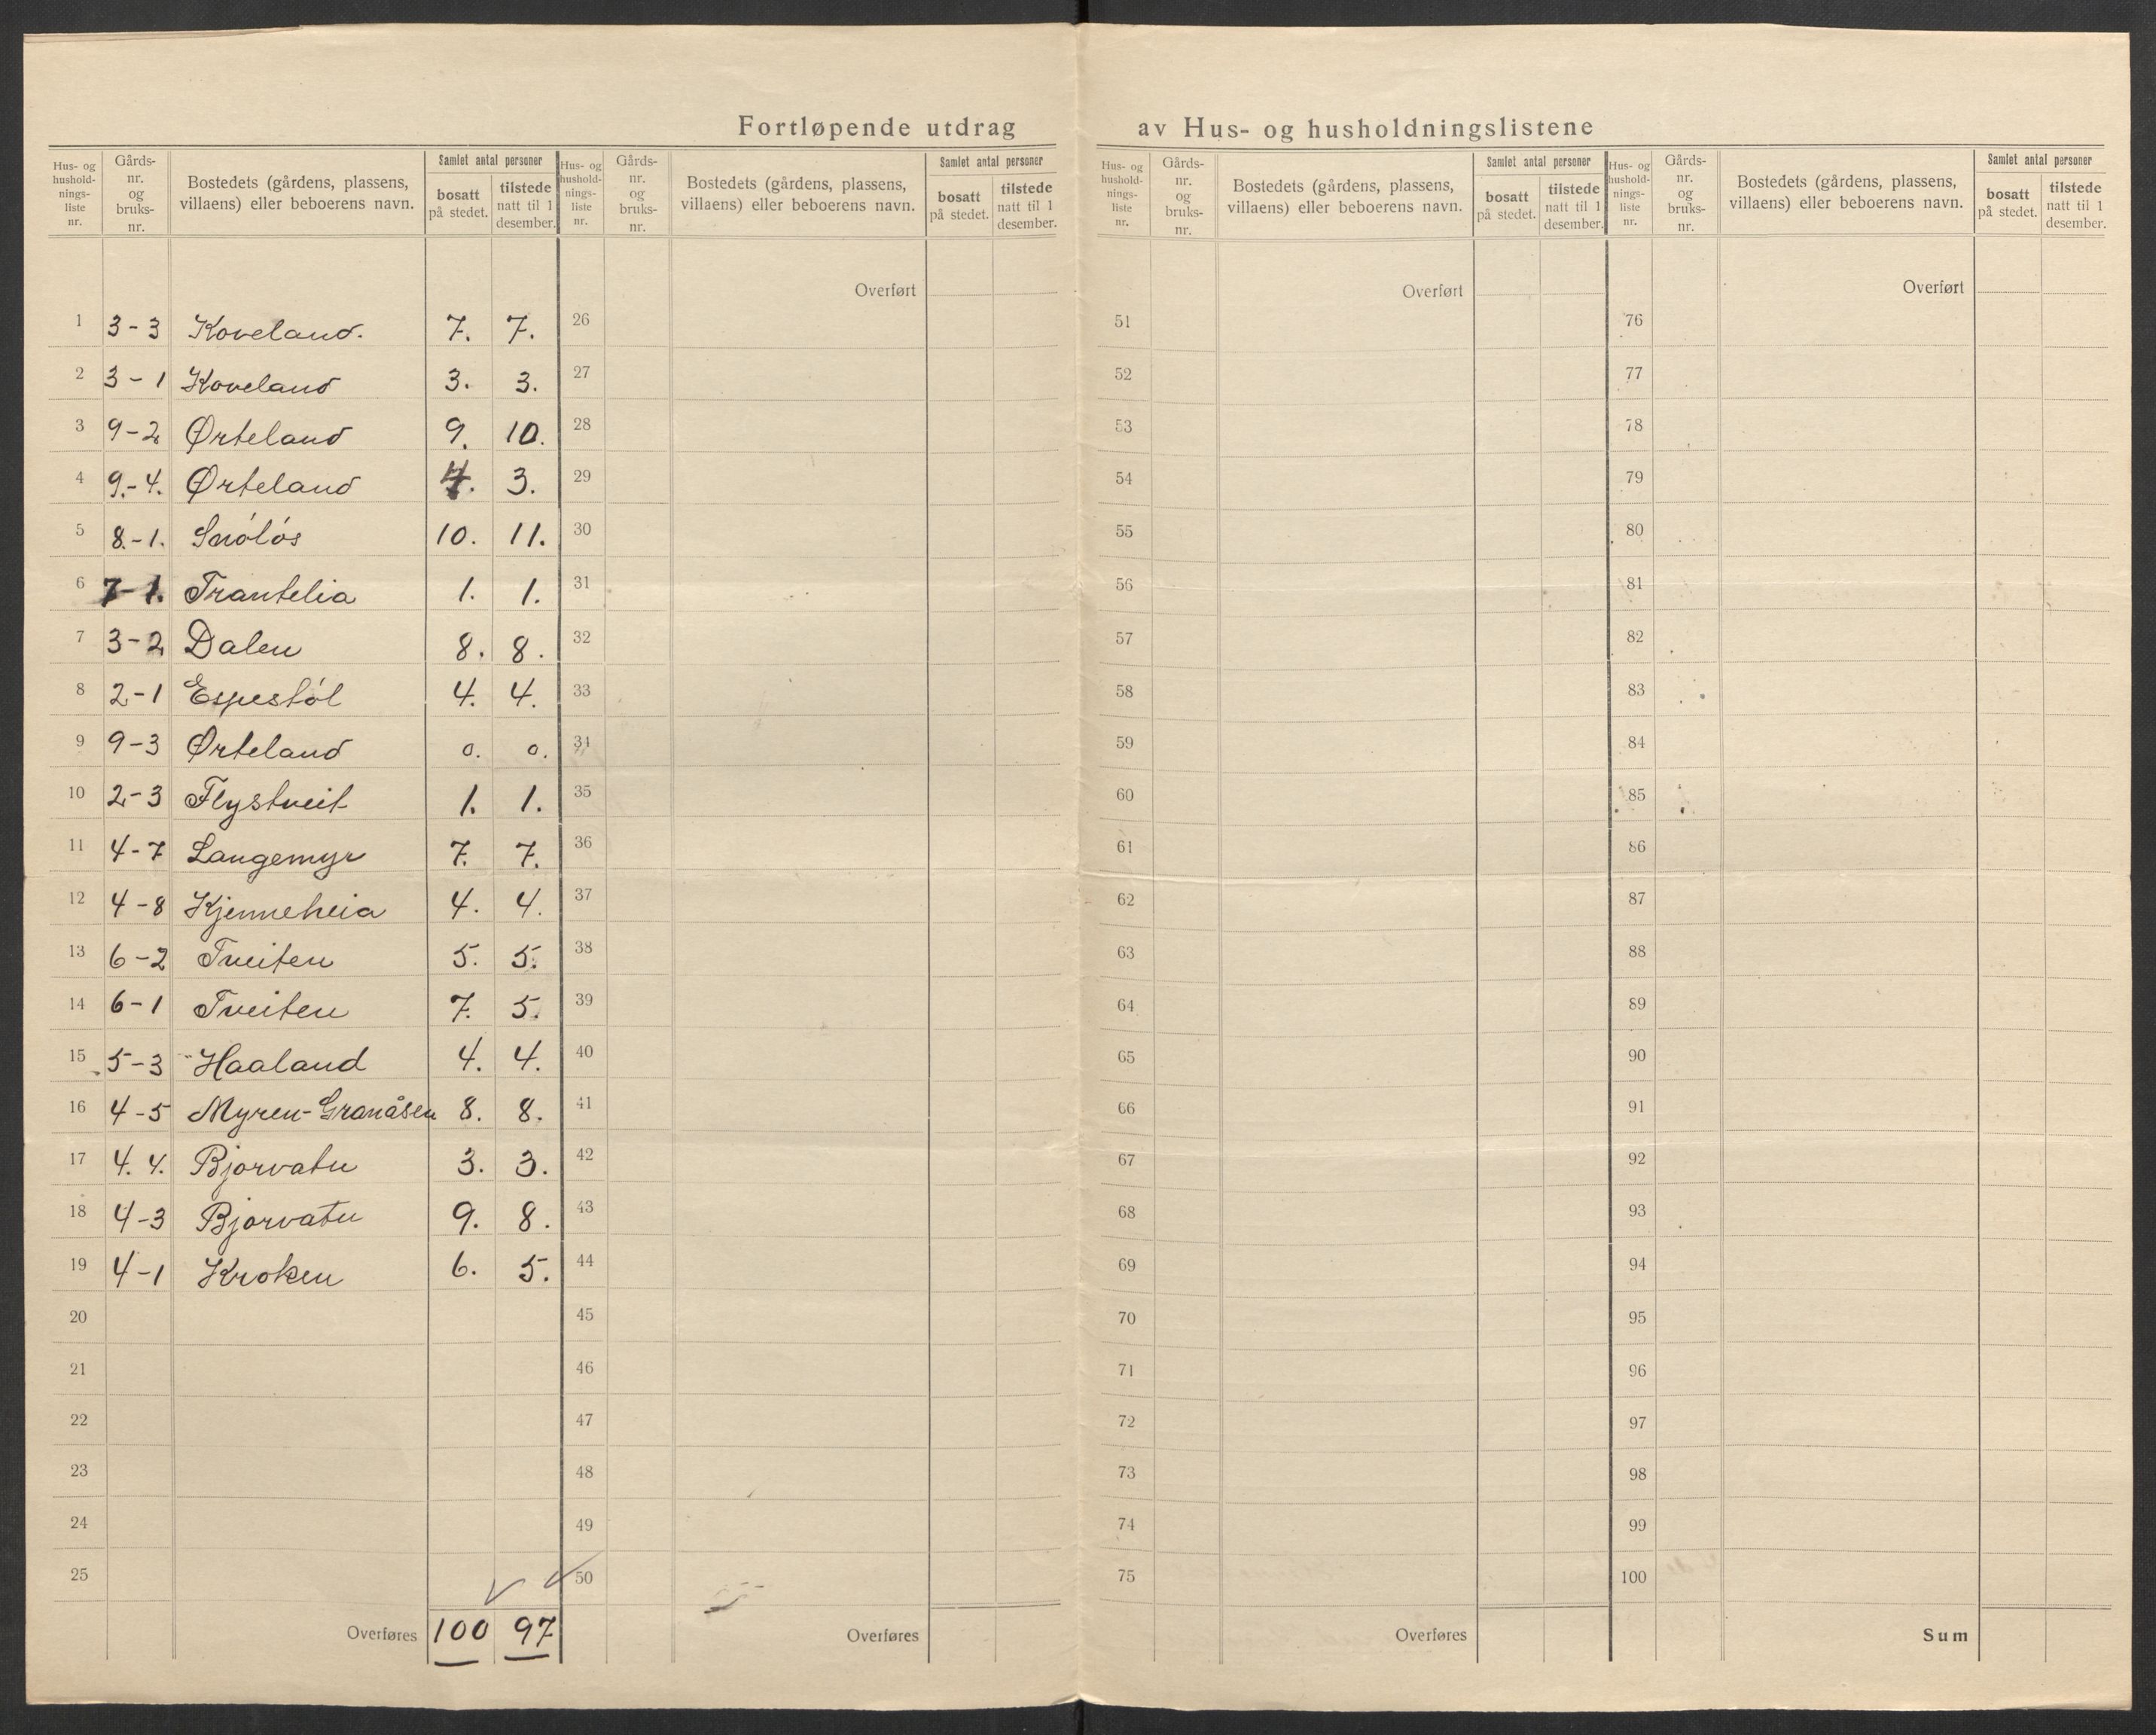 Fortløpende utdrag av Hus- og husholdningslistene
Hus- og husholdningsliste nr. | Gårds-nr. og bruks-nr. | Bostedets (gårdens, plassens, villaens) eller beboerens navn. | Samlet antal personer | bosatt på stedet. | tilstede natt til 1 desember.
Hus- og husholdningsliste nr. | Gårds-nr. og bruks-nr. | Bostedets (gårdens, plassens, villaens) eller beboerens navn. | Samlet antal personer | bosatt på stedet. | tilstede natt til 1 desember.
Hus- og husholdningsliste nr. | Gårds-nr. og bruks-nr. | Bostedets (gårdens, plassens, villaens) eller beboerens navn. | Samlet antal personer | bosatt på stedet. | tilstede natt til 1 desember.
Hus- og husholdningsliste nr. | Gårds-nr. og bruks-nr. | Bostedets (gårdens, plassens, villaens) eller beboerens navn. | Samlet antal personer | bosatt på stedet. | tilstede natt til 1 desember.
Overført Overført Overført
1 3-3 Koveland. 7. 7. 26 51 76
2 3-1 Koveland 3. 3. 27 52 77
3 9-2 Ørteland 9. 10. 28 53 78
4 9.-4. Ørteland 4. 3. 29 54 79
5 8.-1. Snóløs 10. 11. 30 55 80
6 7-1. Trantelia 1. 1. 31 56 81
7 3-2 Dalen 8. 8. 32 57 82
8 2-1 Espestól 4. 4. 33 58 83
9 9-3 Ørteland 0. 0. 34 59 84
10 2-3 Flystveit 1. 1. 35 60 85
11 4-7 Langemyr 7. 7. 36 61 86
12 4-8 Kjenneheia 4. 4. 37 62 87
13 6-2 Tveiten 5. 5. 38 63 88
14 6-1 Tveiten 7. 5. 39 64 89
15 5-3 Haaland 4. 4. 40 65 90
16 4-5 Myren-Granåsen 8. 8. 41 66 91
17 4. 4. Bjorvatn 3. 3. 42 67 92
18 4-3 Bjorvatn 9. 8. 43 68 93
19 4-1 Kroken 6. 5. 44 69 94
20 45 70 95
21 46 71 96
22 47 72 97
23 48 73 98
24 49 74 99
25 50 75 100
Overføres 100 97 Overføres Overføres Sum